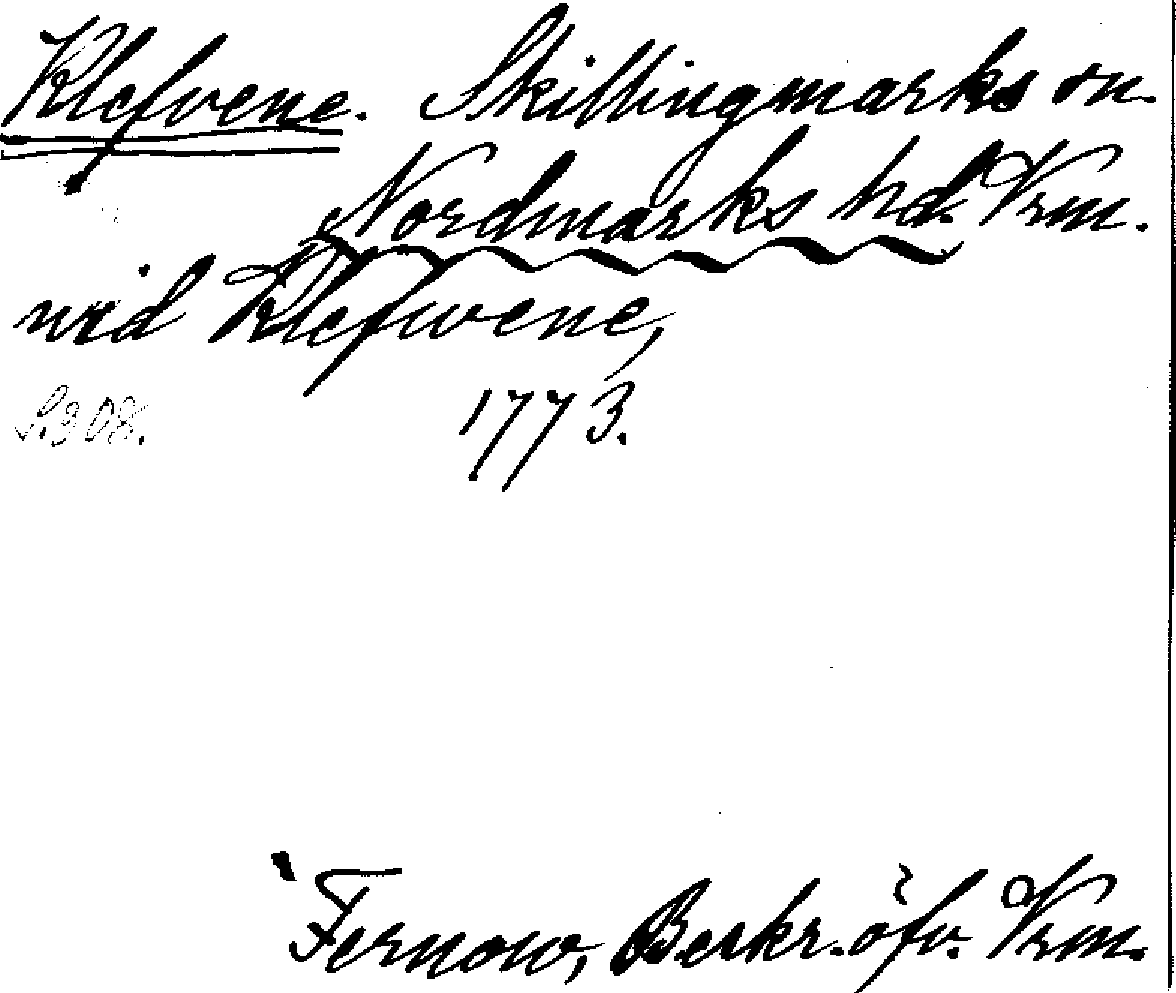 Klefvene. Skillingmarks sn.
Nordmarks hd. Vrm.
wid Klefwene,
S. 308. 1773.
Fernow, Beskr. öfv. Vrm.